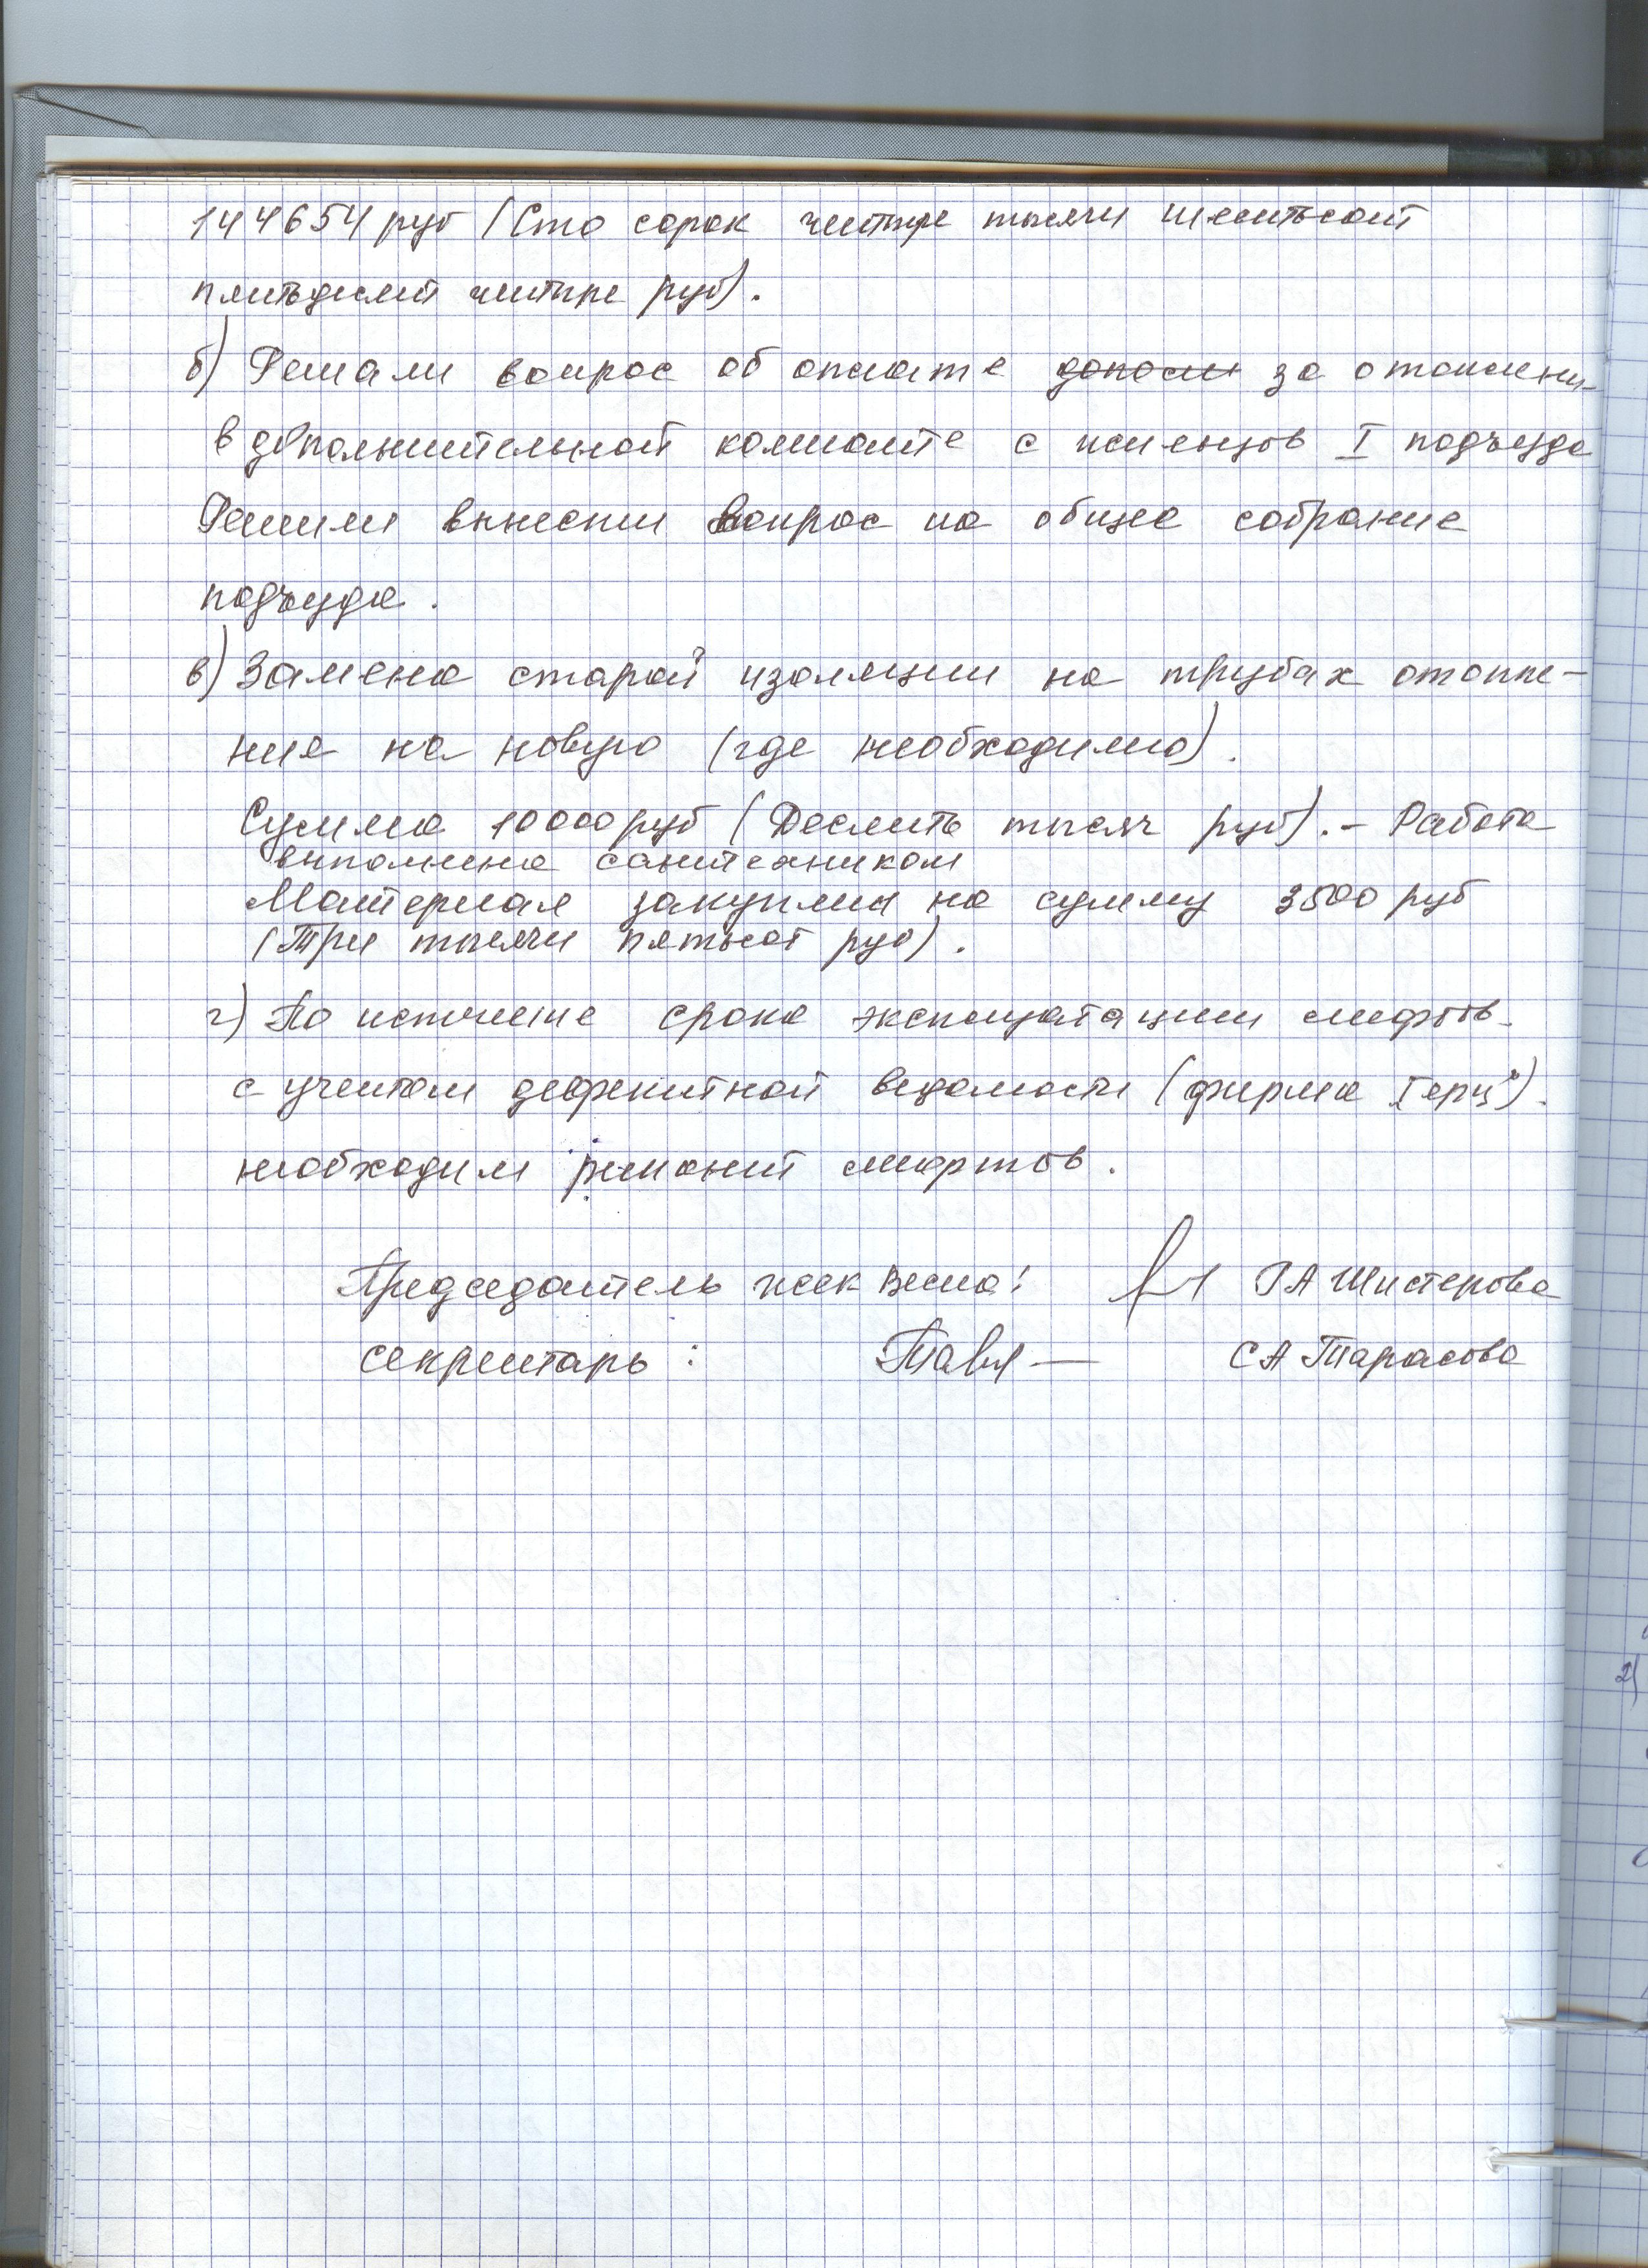 144654 руб (Сто сорок четыре тысячи шестьсот
пятьдесят четыре руб).
б) Решали вопрос об оплате допол за отоплени-
в дополнительной комнате с жильцов I подъезда
Решили вынести вопрос на общее собрание
подъезда.
в) Замена старой изоляции на трубах отопле-
ния на новую (где необходимо).
Сумма 10000 руб (Десять тысяч руб). - Работа
выполнена сантехником
Материал закупили на сумму 3500 руб
(Три тысячи пятьсот руб).
г) По истечение срока эксплуатации лифтов
с учетом дефектной ведомости (фирма „Герц").
необходим ремонт лифтов.
Председатель жск Весна: Г А Шистерова
секретарь: С А Тарасова
2)